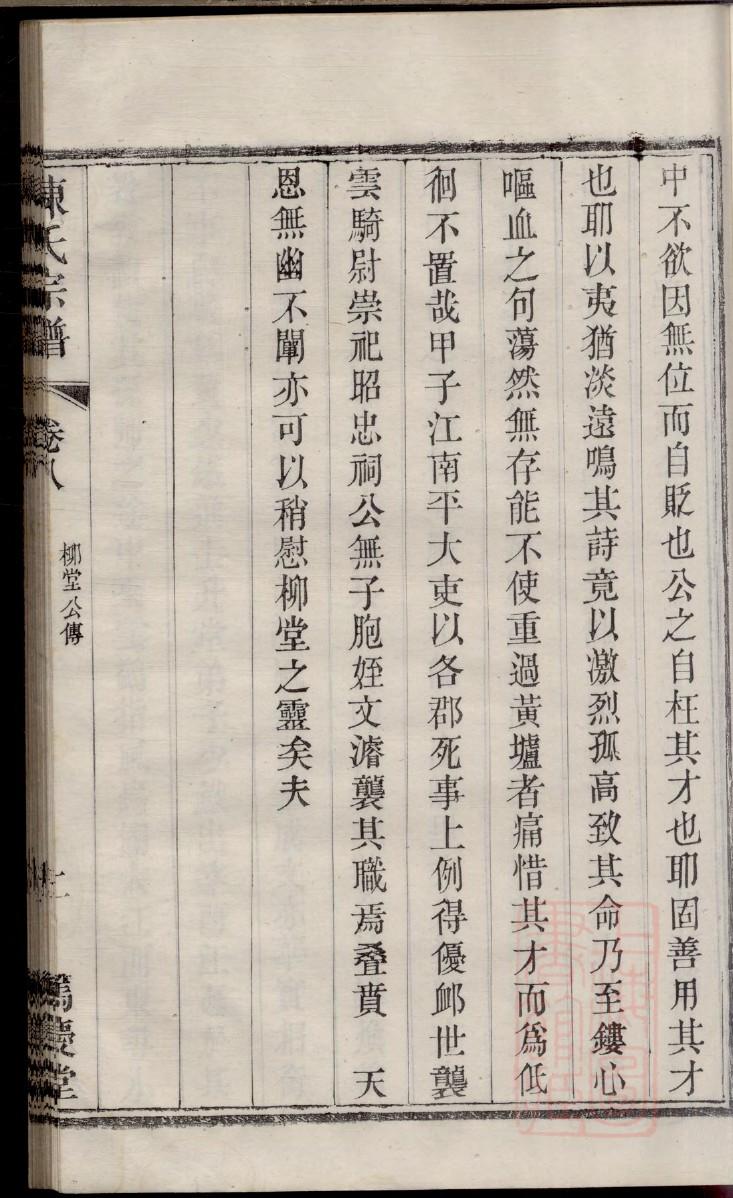 中不欲因無位而自貶也公之自枉其才也耶固善用其才
也耶以夷猶淡遠鳴其詩竟以激烈孤高致其命乃至鏤心
嘔血之句蕩然無存能不使重過黃壚者痛惜其才而爲低
徊不置哉甲子江南平大吏以各郡死事上例得優卹世襲
雲騎尉崇祀昭忠祠公無子胞姪文濬襲其職焉叠賁　天
恩無幽不闡亦可以稍慰柳堂之靈矣夫
陳氏宗譜
卷八
柳堂公傳
篤慶堂